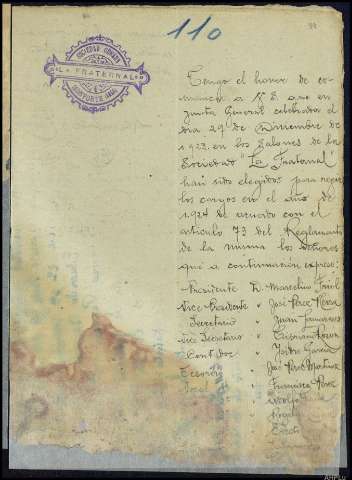 110
SOCIEDAD OBRERA
LA FRATERNAL
Tengo el honor de co-
municar a V.E. que en
Junta General celebrada el
dia 29 de Diciembre de
1.923 en los Salones de la
Sociedad "La Fraternal"
han sido elegidos para regir
los cargos en el año de
1.924 de acuerdo con el
articulo 73 del Reglamento
de la misma los señores
que a continuación expreso:
Presidente D. Marcelino
Vice Presidente " José Perez
Secretario " Juan
Vice Secretario "
Contador " García
Tesorero José Perez Martinez
Vocal " Francisco Perez